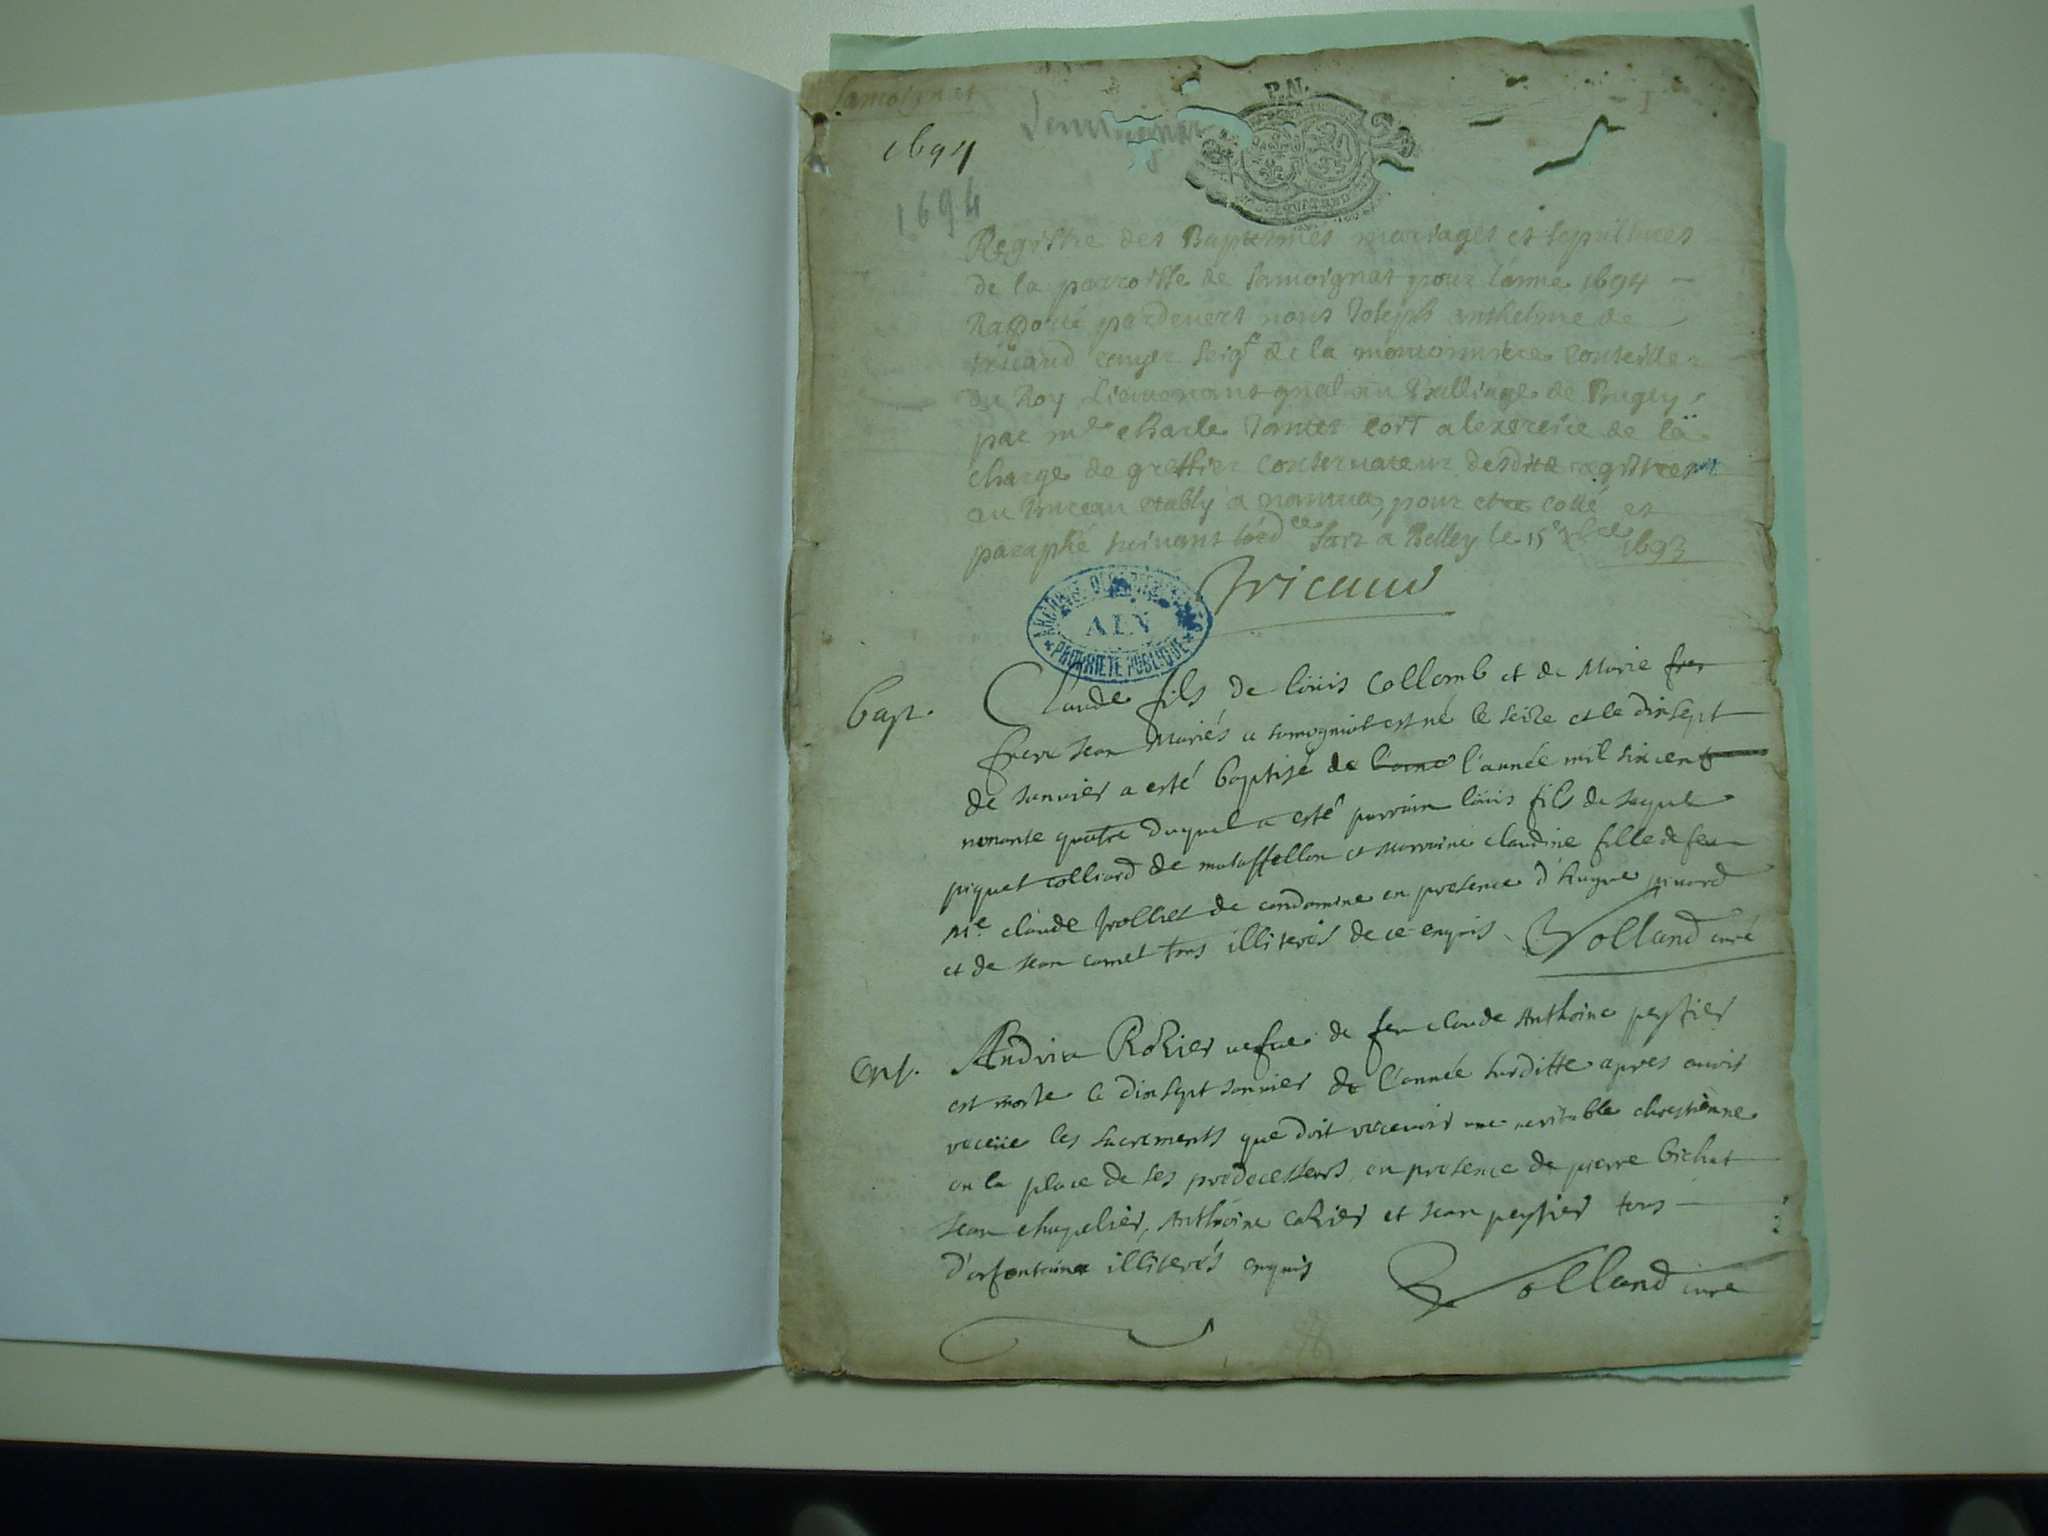 Samoignat
1694
P.N.
1694
Registre des Baptesmes mariages et sepultures
de la parroisse de Samoignat pour lanné 1694
Raporté pardevert nous Joseph Anthelme de
tricaud escuyer Seigr de la Conseiller
du Roy Lieutenant gnal au Balliage de Bugey
par me charle Jantet alexercice de la
charge de greffier Conservateur desdits registres
au Bureau etably a nantua, pour etre cotté et
paraphé suivant Fait a Belley le 15e Xbre 1693
Tricaud
ARCHIVES DEPARTEMENTALES
AIN
PROPRIÉTÉ PUBLIQUE
bapt. Claude fils de loüis Collomb et de Marie frer
frere Jean Mariés a samogniat est né le seize et le dixsept
de Janvier a esté baptisé de l'année mil sixcent
nonante quatre duquel a esté parrain loüis fils de
piquet colliard de mataffellon et marraine claudine fille de feu
Me claude trolliet de condamine en presence d'hugue pinard
et de Jean comet tous illiterés de ce enquis. Volland curé
Ent. Andrea Rozier vefue de feu claude Anthoine peysier
est morte le dixsept Janvier de l'année susditte apres avoir
receüe les sacrements que doit recevoir une veritable chrestienne
en la place de ses predecesseurs en presence de pierre bichat
Jean chapelier, Anthoine cozier et Jean peysier tous
d'orfontaine illiterés enquis Volland curé